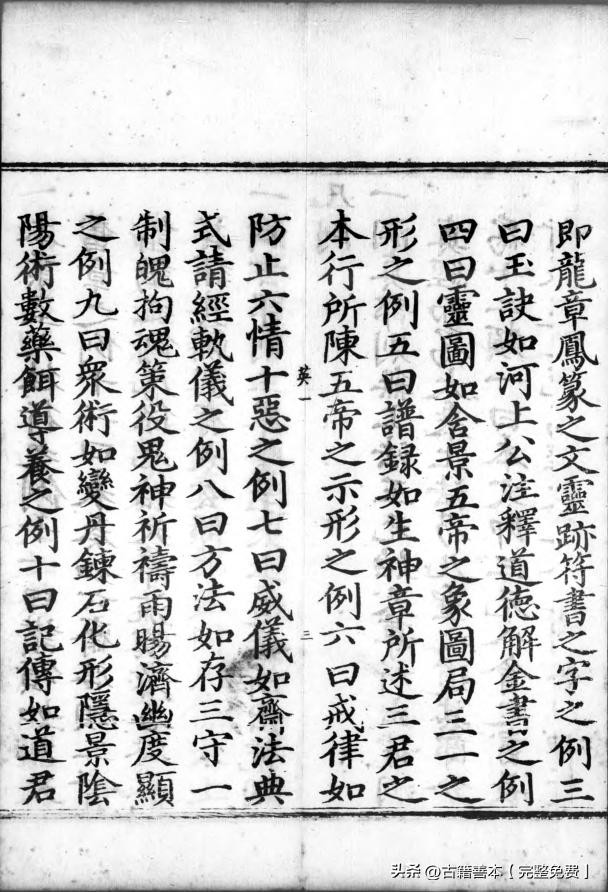 即龍章鳳篆之文靈跡符書之字之例三
曰玉訣如河上公注釋道徳解金書之例
四曰靈圖如含景五帝之象圖局三一之
形之例五曰譜録如生神章所述三君之
本行所陳五帝之示形之例六曰戒律如
英一
三
防止六情十惡之例七曰威儀如齋法典
式請經軌儀之例八曰方法如存三守一
制魄拘魂策役鬼神祈禱雨暘濟幽度顯
之例九曰衆術如變丹鍊石化形隱景陰
陽術數藥餌導養之例十曰記傳如道君
头条 @古籍善本【完整免费】